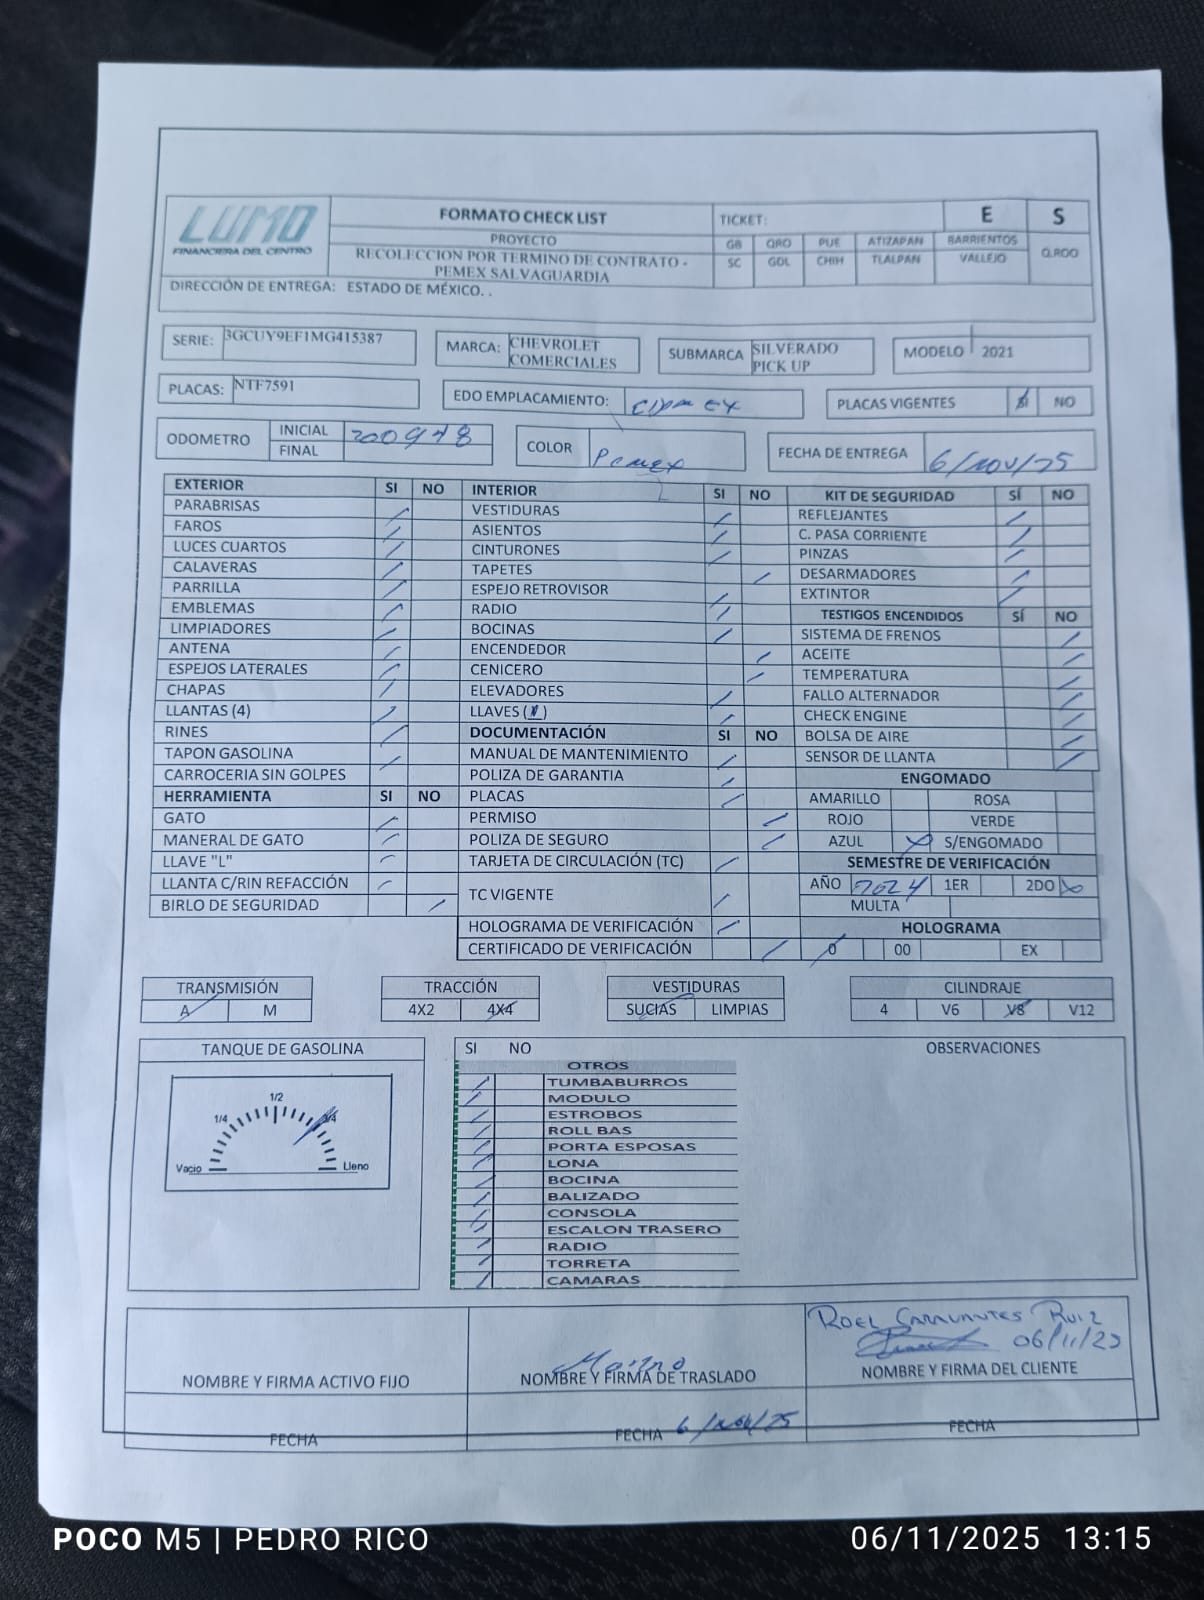 LUMO
FINANCIERA DEL CENTRO
FORMATO CHECK LIST
PROYECTO
RECOLECCION POR TERMINO DE CONTRATO -
PEMEX SALVAGUARDIA
TICKET: E S
GB QRO PUE ATIZAPAN BARRIENTOS Q.ROO
SC GDL CHIH TLALPAN VALLEJO
DIRECCIÓN DE ENTREGA: ESTADO DE MÉXICO. .
SERIE: 3GCUY9EF1MG415387
MARCA: CHEVROLET
COMERCIALES
SUBMARCA SILVERADO
PICK UP
MODELO 2021
PLACAS: NTF7591
EDO EMPLACAMIENTO: CDMEX
PLACAS VIGENTES SI NO
ODOMETRO INICIAL 200948
FINAL
COLOR Pemex
FECHA DE ENTREGA 6/NOV/25
EXTERIOR SI NO
PARABRISAS
FAROS
LUCES CUARTOS
CALAVERAS
PARRILLA
EMBLEMAS
LIMPIADORES
ANTENA
ESPEJOS LATERALES
CHAPAS
LLANTAS (4)
RINES
TAPON GASOLINA
CARROCERIA SIN GOLPES
HERRAMIENTA SI NO
GATO
MANERAL DE GATO
LLAVE "L"
LLANTA C/RIN REFACCIÓN
BIRLO DE SEGURIDAD
INTERIOR SI NO
VESTIDURAS
ASIENTOS
CINTURONES
TAPETES
ESPEJO RETROVISOR
RADIO
BOCINAS
ENCENDEDOR
CENICERO
ELEVADORES
LLAVES (1)
DOCUMENTACIÓN SI NO
MANUAL DE MANTENIMIENTO
POLIZA DE GARANTIA
PLACAS
PERMISO
POLIZA DE SEGURO
TARJETA DE CIRCULACIÓN (TC)
TC VIGENTE
HOLOGRAMA DE VERIFICACIÓN
CERTIFICADO DE VERIFICACIÓN
KIT DE SEGURIDAD SÍ NO
REFLEJANTES
C. PASA CORRIENTE
PINZAS
DESARMADORES
EXTINTOR
TESTIGOS ENCENDIDOS SÍ NO
SISTEMA DE FRENOS
ACEITE
TEMPERATURA
FALLO ALTERNADOR
CHECK ENGINE
BOLSA DE AIRE
SENSOR DE LLANTA
ENGOMADO
AMARILLO ROSA
ROJO VERDE
AZUL X S/ENGOMADO
SEMESTRE DE VERIFICACIÓN
AÑO 2024 1ER 2DO X
MULTA
HOLOGRAMA
0 00 EX
TRANSMISIÓN
A M
TRACCIÓN
4X2 4X4
VESTIDURAS
SUCIAS LIMPIAS
CILINDRAJE
4 V6 V8 V12
TANQUE DE GASOLINA
1/2
1/4 3/4
Vacio Lleno
SI NO
OTROS
TUMBABURROS
MODULO
ESTROBOS
ROLL BAS
PORTA ESPOSAS
LONA
BOCINA
BALIZADO
CONSOLA
ESCALON TRASERO
RADIO
TORRETA
CAMARAS
OBSERVACIONES
NOMBRE Y FIRMA ACTIVO FIJO
FECHA
NOMBRE Y FIRMA DE TRASLADO
FECHA 6/NOV/25
ROEL CARVANTES RUIZ
06/11/25
NOMBRE Y FIRMA DEL CLIENTE
FECHA
POCO M5 | PEDRO RICO
06/11/2025 13:15